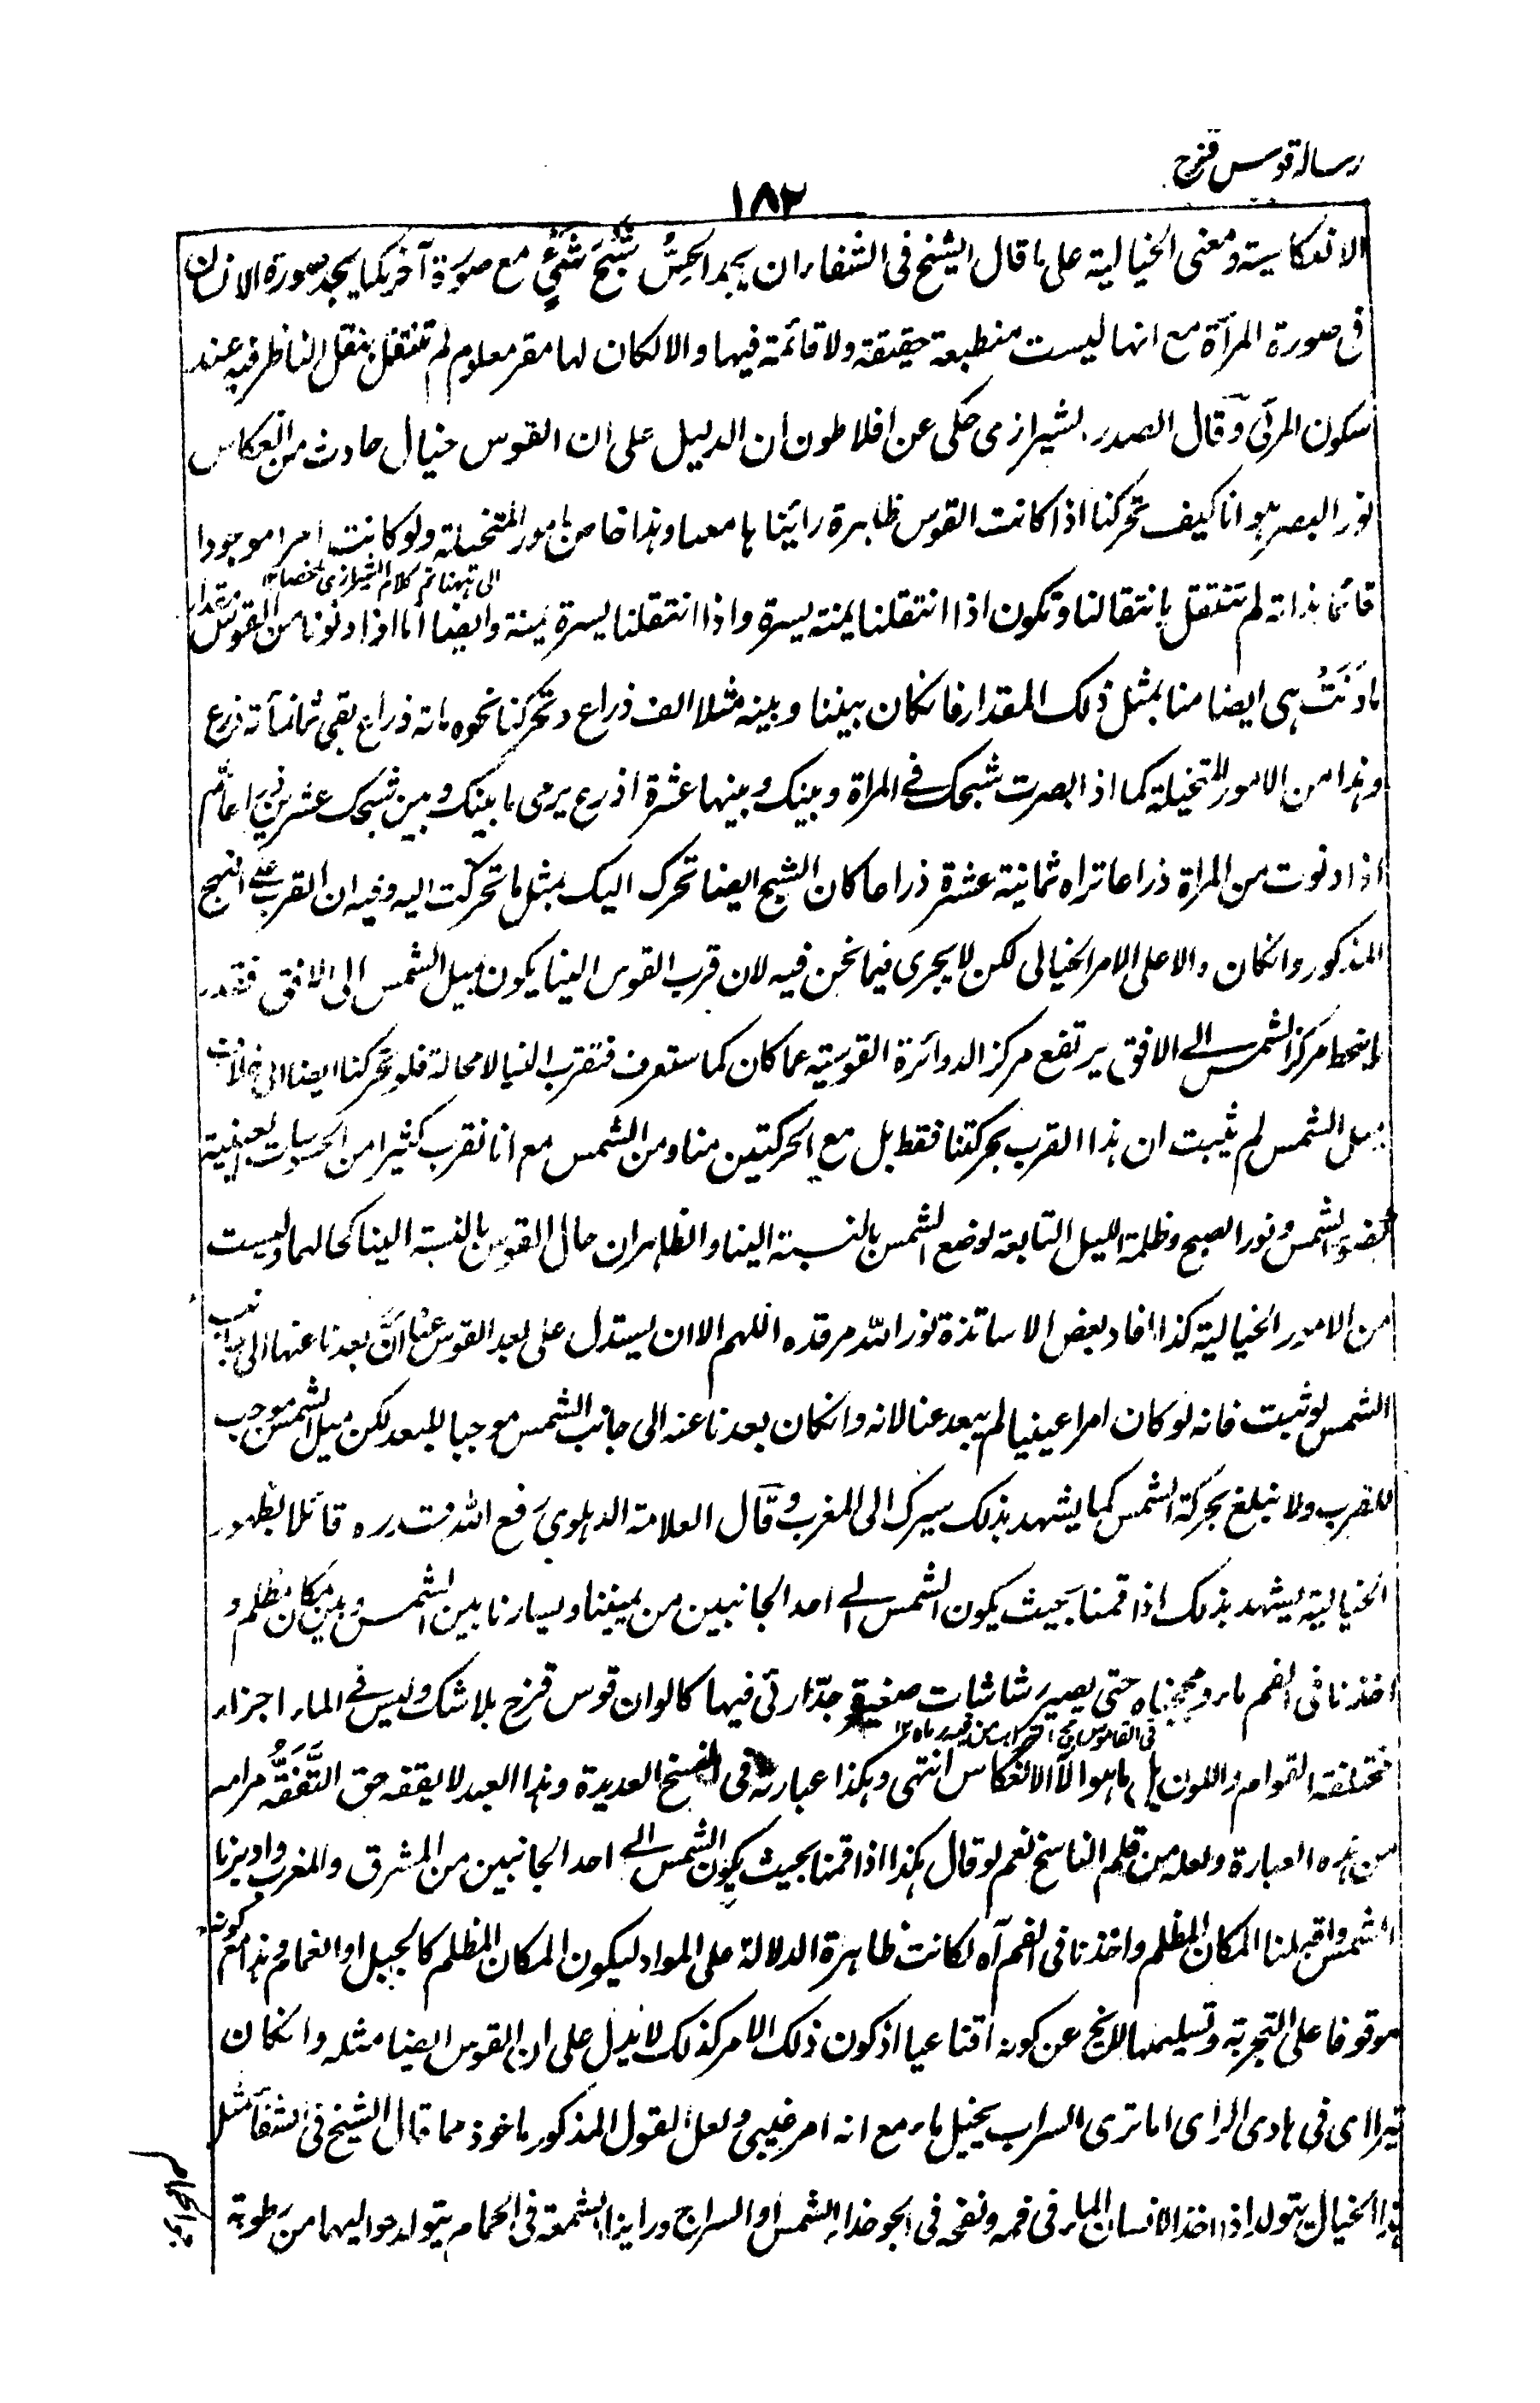 رسالة قوس قزح
١٨٢
الانعكاسية ومعنى الخيالية على ما قال الشيخ فى الشفاء ان يجد الحِسُّ شَبَحَ شَئٍ مع صورة آخر كما يجد صورة الانسان
فى صورة المرآة مع انها ليست منطبعة حقيقة ولا قائمة فيها والا لكان لها مقر معلوم لم تنتقل بنقل الناظر فيه عند
سكون المرئى وقال الصدر الشيرازى حكى عن افلاطون ان الدليل على ان القوس خيال حادث من انعكاس
نور البصر هو انا كيف تحركنا اذا كانت القوس ظاهرة رائينا ها معنا وهذا خاص بامور المتخيلة ولو كانت امرا موجودا
الى ههنا تم كلام الشيرازى ملخصا ١٢
قائما بذاته لم تنتقل بانتقالنا وتكون اذا انتقلنا يمنة يسرة واذا انتقلنا يسرة يمنة وايضا انا اذا دنونا من القوس مقدار
ما دَنَتْ هى ايضا منا بمثل ذلك المقدار فانكان بيننا وبينه مثلا الف ذراع وتحركنا نحوه مائة ذراع بقى ثمانمأئة ذرع
وهذا من الامور المتخيلة كما اذا ابصرت شبحك فى المرآة وبينك وبينها عشرة اذرع يرى ما بينك وبين شبحك عشرين ذراعا ثم
اذا دنوت من المرآة ذراعا تراه ثمانية عشرة ذراعا كان الشبح ايضا تحرك اليك بمثل ما تحركت اليه وفيه ان القرب على النهج
المذكور وانكان دالا على الامر الخيالى لكن لا يجرى فيما نحن فيه لان قرب القوس الينا يكون بميل الشمس الى الافق فبقدر
ما ينحط مركز الشمس الى الافق يرتفع مركز الدوائرة القوسية عما كان كما ستعرف فتقرب الينا لا محالة فلو تحركنا ايضا الى خلاف
ميل الشمس لم يثبت ان هذا القرب بحركتنا فقط بل مع الحركتين منا ومن الشمس مع انا نقرب كثيرا من الحسيات العينية
كضوء الشمس ونور الصبح وظلمة الليل التابعة لوضع الشمس بالنسبة الينا والظاهر ان حال القوس بالنسبة الينا كحالهما وليست
من الامور الخيالية كذا افاد بعض الاساتذة نور الله مرقده اللهم الا ان يستدل على بعد القوس عنا انَّ بعدنا عنها الى جانب
الشمس لو ثبت فانه لو كان امرا عينيا لم يبعد عنا لانه وانكان بعدنا عنه الى جانب الشمس موجبا للبعد لكن ميل الشمس موجب
للقرب ولا نبلغ بحركة الشمس كما يشهد بذلك سيرك الى المغرب وقال العلامة الدهلوى رفع الله قدره قائلا بظهور
الخيالية يشهد بذلك اذا قمنا بحيث يكون الشمس الى احد الجانبين من يميننا ويسارنا بين الشمس وبين مكان مظلم و
اخذنا فى الفم ماء ومججناه حتى يصير رشاشات صغيرة جدّا رئى فيها كالوان قوس قزح بلا شك وليس فى الماء اجزاء
مختلفة القوام واللون بل ما هو الا الانعكاس انتهى وهكذا عبارته فى النسخ العديدة وهذا العبد لا يفقه حق التَّفَقُّه مرامه
من هذه العبارة ولعله من قلم الناسخ نعم لو قال هكذا اذا قمنا بحيث يكون الشمس الى احد الجانبين من المشرق والمغرب وادبرنا
الشمس واقبلنا المكان المظلم واخذنا فى الفم آه لكانت ظاهرة الدلالة على المراد ليكون المكان المظلم كالجبل او الغمام وهذا مع كونه
موقوفا على التجربة وتسليمها لا يخ عن كونه اقناعيا اذ كون ذلك الامر كذلك لا يدل على ان القوس ايضا مثله وانكان
يتراا ى فى بادى الراى اما ترى السراب يخيل ماء مع انه امر غيبى ولعل القول المذكور ماخوذ مما قال الشيخ فى الشفآ مثل
هذا الخيال يتولد اذا اخذ الانسان الماء فى فمه ونفخه فى الجو حذاء الشمس او السراج وراينا الشمعة فى الحمام يتولد حواليها من رطوبة